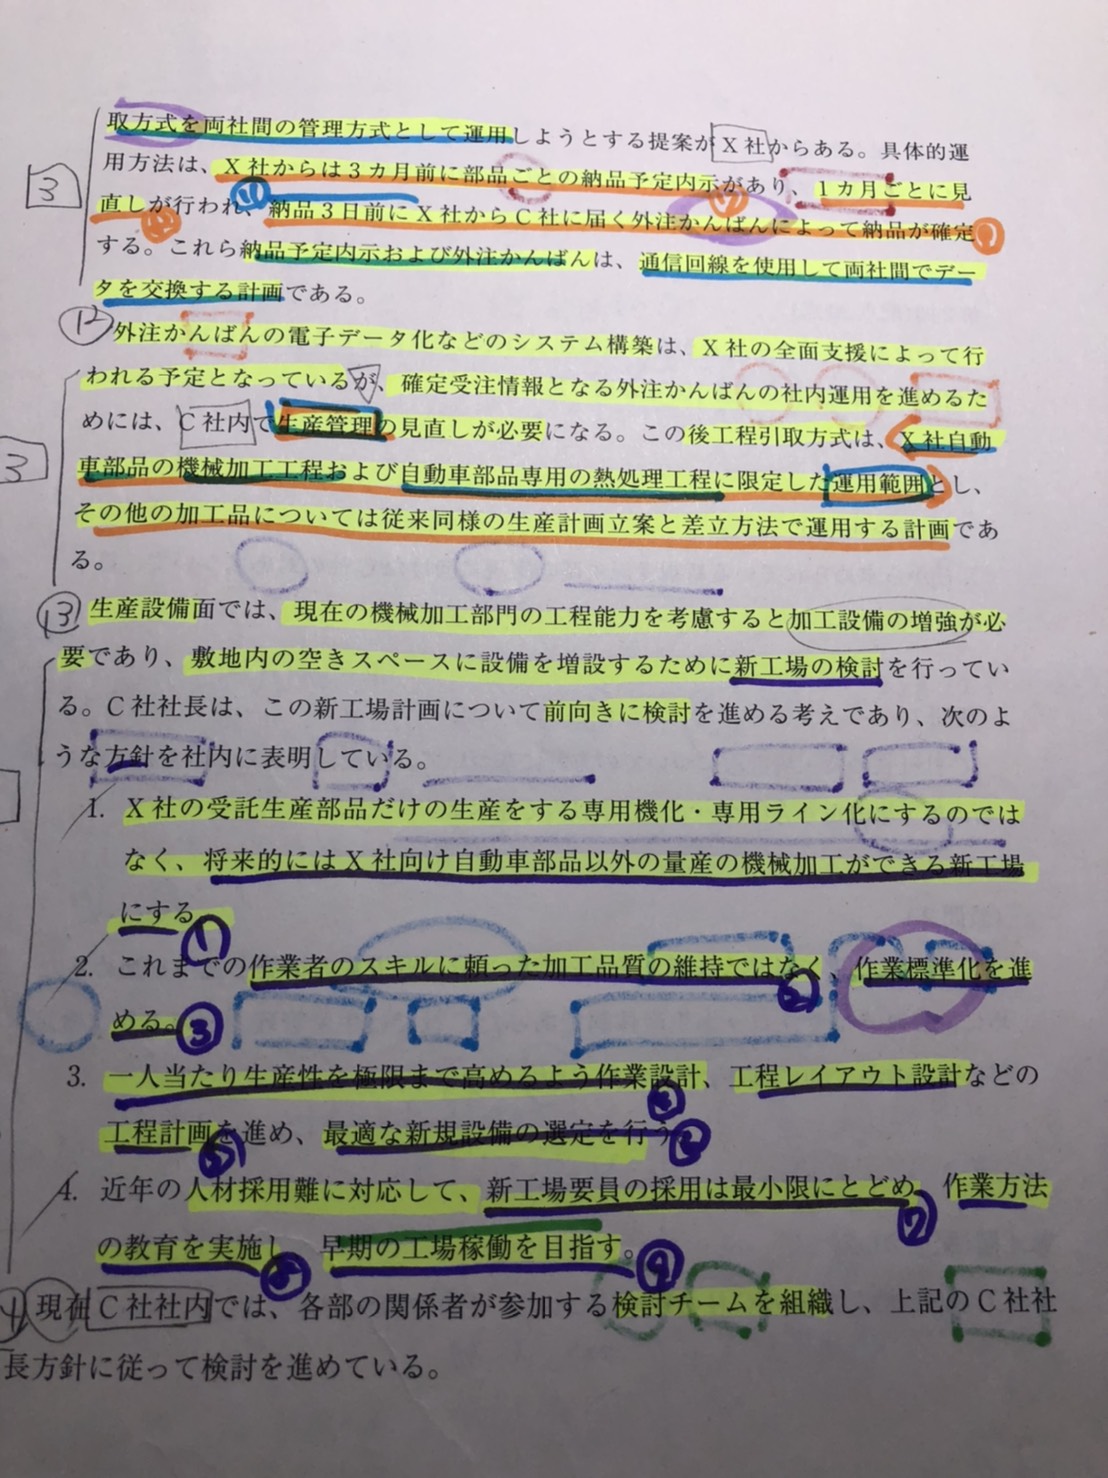 取方式を両社間の管理方式として運用しようとする提案がX社からある。具体的運
3
用方法は、X社からは3カ月前に部品ごとの納品予定内示があり、1カ月ごとに見
直しが行われ、納品3日前にX社からC社に届く外注かんばんによって納品が確定
する。これら納品予定内示および外注かんばんは、通信回線を使用して両社間でデー
タを交換する計画である。
12
外注かんばんの電子データ化などのシステム構築は、X社の全面支援によって行
われる予定となっているが、確定受注情報となる外注かんばんの社内運用を進めるた
めには、C社内で生産管理の見直しが必要になる。この後工程引取方式は、X社自動
3
車部品の機械加工工程および自動車部品専用の熱処理工程に限定した運用範囲とし、
その他の加工品については従来同様の生産計画立案と差立方法で運用する計画であ
る。
13
生産設備面では、現在の機械加工部門の工程能力を考慮すると加工設備の増強が必
要であり、敷地内の空きスペースに設備を増設するために新工場の検討を行ってい
る。C社社長は、この新工場計画について前向きに検討を進める考えであり、次のよ
うな方針を社内に表明している。
1. X社の受託生産部品だけの生産をする専用機化・専用ライン化にするのでは
なく、将来的にはX社向け自動車部品以外の量産の機械加工ができる新工場
にする。①
2. これまでの作業者のスキルに頼った加工品質の維持ではなく、作業標準化を進
②
める。③
3. 一人当たり生産性を極限まで高めるよう作業設計、工程レイアウト設計などの
④
工程計画を進め、最適な新規設備の選定を行う。
⑤ ⑥
4. 近年の人材採用難に対応して、新工場要員の採用は最小限にとどめ、作業方法
⑦
の教育を実施し、早期の工場稼働を目指す。
⑧ ⑨
現在C社社内では、各部の関係者が参加する検討チームを組織し、上記のC社社
長方針に従って検討を進めている。